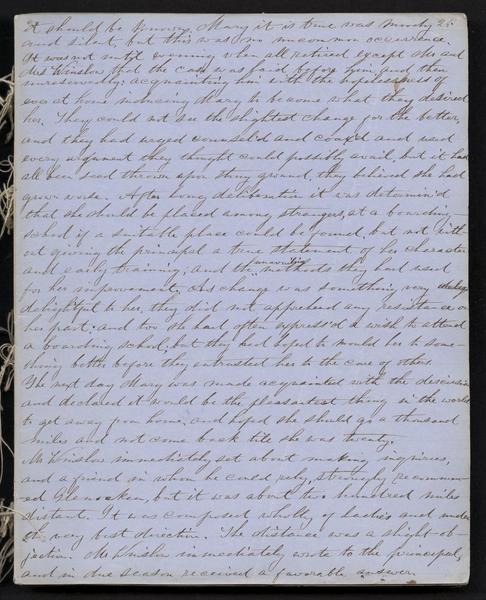 it should be known. Mary it is true was moody 25
and silent, but this was no uncommon occurrence.
It was not until evening when all retired except she and
Mrs Winslow, that the case was laid before him, and then
unreservedly: acquainting him with the hopelessness of
ever at home inducing Mary to become what they desired
her. They could not see the slightest change for the better,
and they had urged counsel'd and coax'd and used
every argument they thought could possibly avail but it had
all been seed thrown upon stony ground, they believed she had
grown worse. After long deliberation it was determin'd
that she should be placed among strangers, at a boarding
school if a suitable place could be found, but not with
out giving the principal a true statement of her character
and early training, and the unavailing methods they had used
for her improvement, As change was something very
delightful to her, they did not apprehend any resistance on
her part: and too she had often express'd a wish to attend
a boarding school, but they had hoped to mould her to some-
thing better before they intrusted her to the care of others.
The next day Mary was made acquainted with the decision
and declared it would be the pleasantest thing in the world
to get away from home, and hoped she should go a thousand
miles and not come back till she was twenty.
Mr Winslow immediately set about making inquiries,
and a friend in whom he could rely, strongly recommen-
ed but it was about two hundred miles
distant. It was composed wholly of ladies and under
the very best direction. The distance was a slight ob-
jection. Mr Winslow immediately wrote to the principal,
and in due season received a favorable answer.